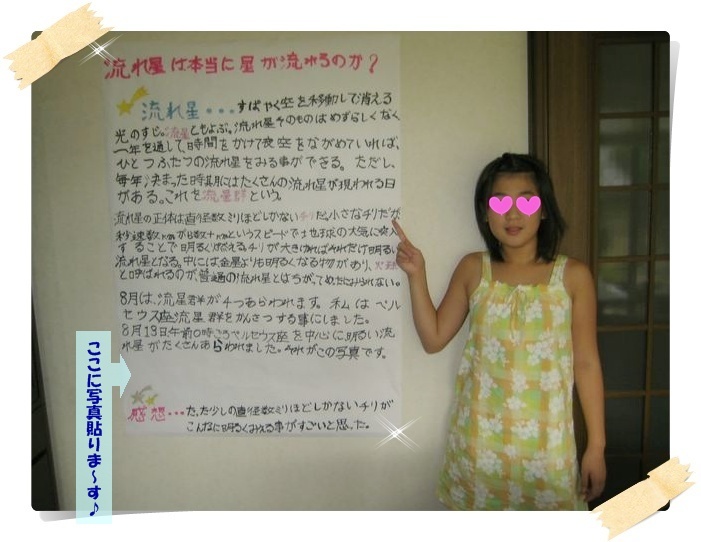 流れ星は本当に星が流れるのか?
流れ星・・・すばやく空を移動して消える
光のすじ。流星ともよぶ。流れ星そのものはめずらしくなく
一年を通して、時間をかけて夜空をながめていれば、
ひとつふたつの流れ星をみる事ができる。ただし、
毎年、決まった時期にはたくさんの流れ星が現われる日
がある。これを流星群という。
流れ星の正体は直径数ミリほどしかないチリだ。小さなチリだが
秒速数kmから数十kmというスピードで地球の大気に突入
することで明るくかがえる。チリが大きければそれだけ明るい
流れ星となる。中には金星よりも明るくなる物があり、火球
と呼ばれるのが普通の流れ星とはちがって、めったにみられない。
8月は、流星群が4つあらわれます。私はペル
セウス座流星群をかんさつする事にしました。
8月13日午前0時ごろペルセウス座を中心に明るい流
れ星がたくさんあらわれました。それがこの写真です。
感想・・・たった少しの直径数ミリほどしかないチリが
こんなに明るくみえる事がすごいと思った。
ここに写真貼りま〜す♪